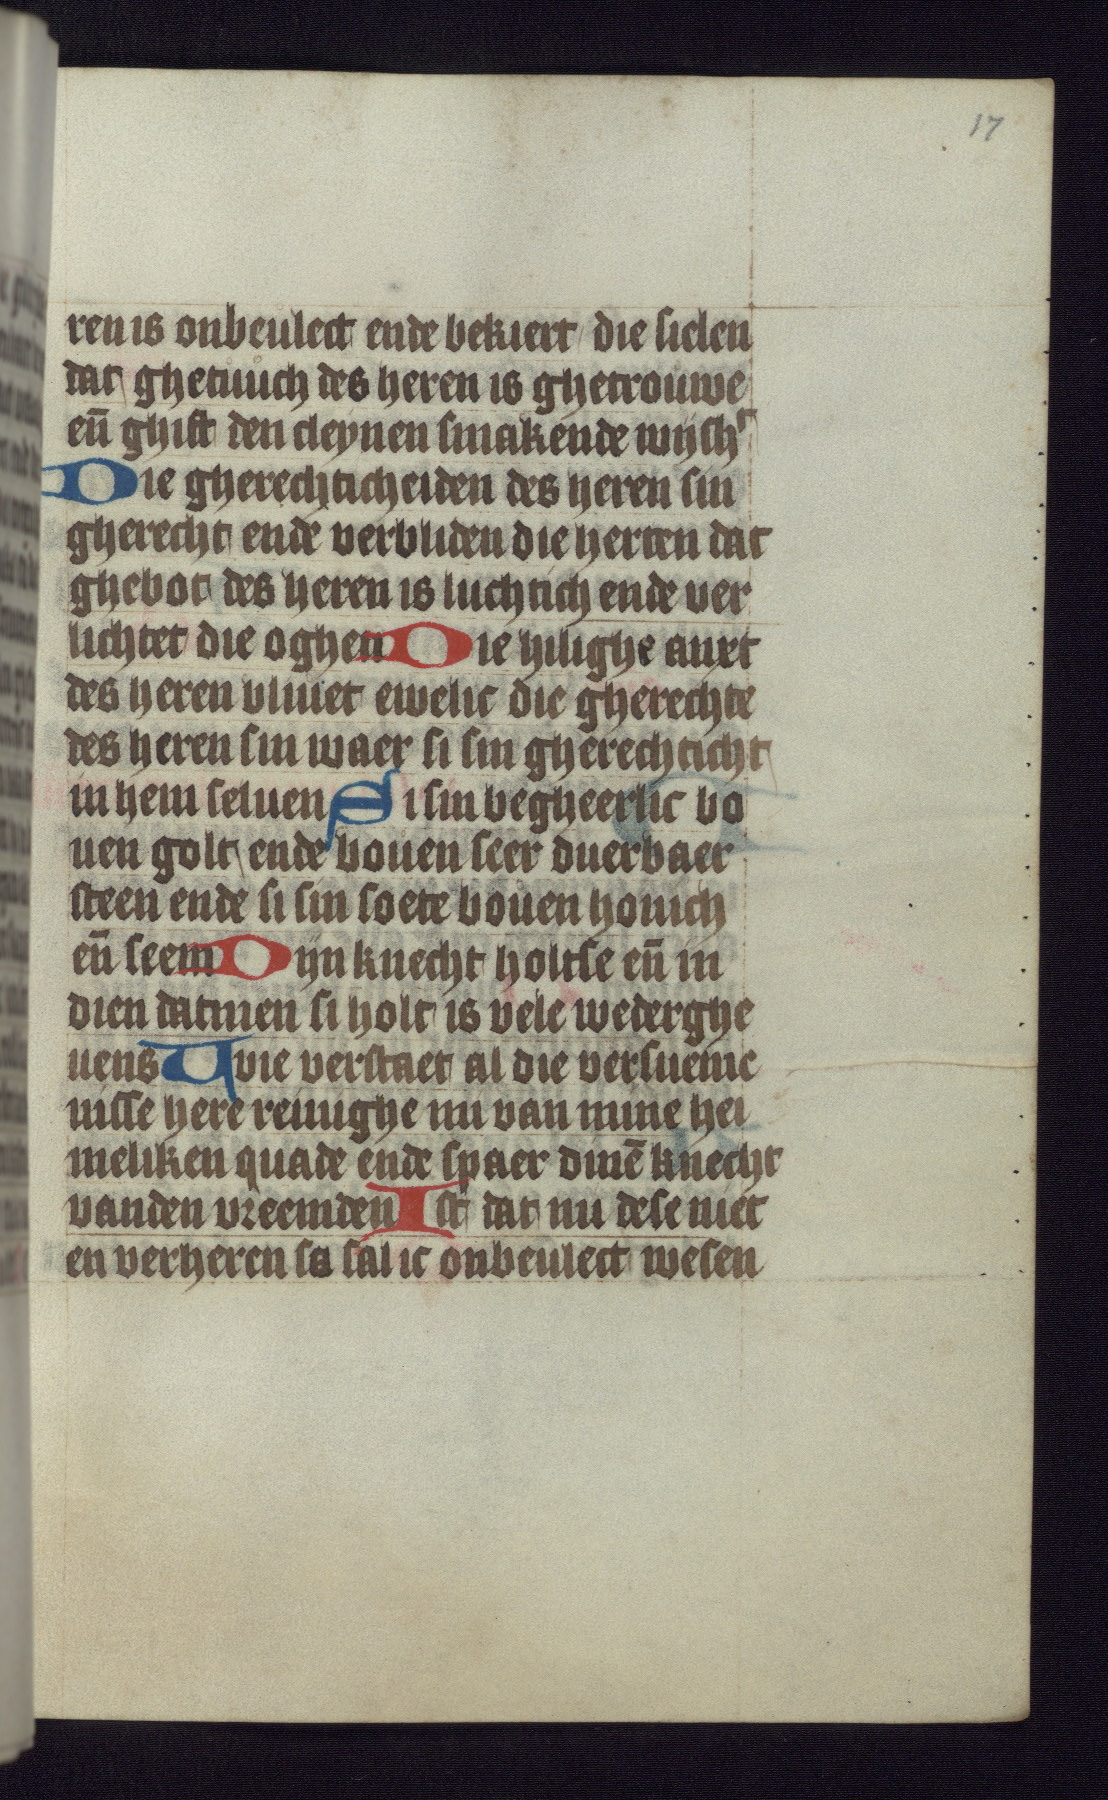 17
ren is onbeulect ende bekiert die sielen
dat ghetuuch des heren is ghetrouwe
eñ ghift den cleynen smakende wijsh͛
Die gherechticheiden des heren sin
gherecht ende verbliden die herten dat
ghebot des heren is luchtich ende ver
lichtet die oghen Die hilighe anxt
des heren bliuet ewelic die gherechte
des heren sin waer si sin gherechticht
in hem seluen Si sin begheerlic bo
uen golt ende bouen seer duerbaer
steen ende si sin soete bouen honich
eñ seem Dijn knecht holtse eñ in
dien datmen si holt is vele wederghe
uens Wie verstaet al die versuemc
nisse here reinighe mi van mine hei
meliken quade ende spaer dinē knecht
vanden vreemden Ist dat mi dese niet
en verheren so sal ic onbeulect wesen